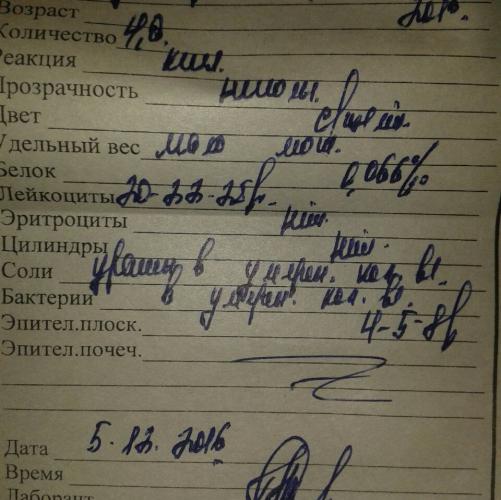 Возраст 2016.
Количество 4,0
Реакция кисл.
Прозрачность
Цвет
Удельный вес мало моч.
Белок 0,066%
Лейкоциты 20-22-25
Эритроциты
Цилиндры
Соли ураты в умерен. кол. вс.
Бактерии в умерен. кол. вс.
Эпител.плоск. 4-5-8
Эпител.почеч.
Дата 5.12.2016
Время
Лаборант